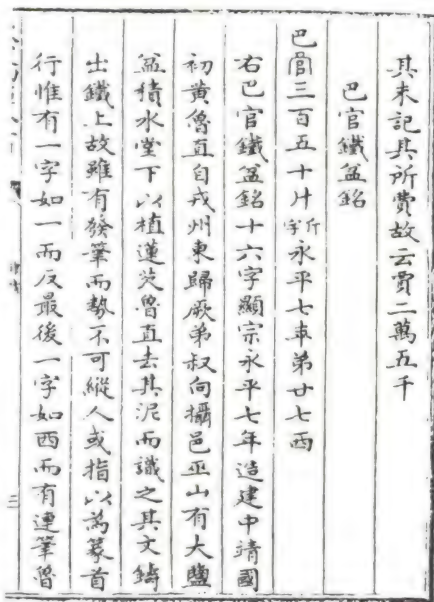 其末記其所費故云賈二萬五千
巴官鐵盆銘
巴官三百五十斤斤字永平七年第廿七西
右巴官鐵盆銘十六字顯宗永平七年造建中靖國
初黄魯直自戎州東歸厥弟叔向攝邑巫山有大鹽
盆積水堂下以植蓮芡魯直去其泥而識之其文鑄
出鐵上故雖有發筆而勢不可縱人或指以為篆首
行惟有一字如一而反最後一字如西而有連筆魯
三